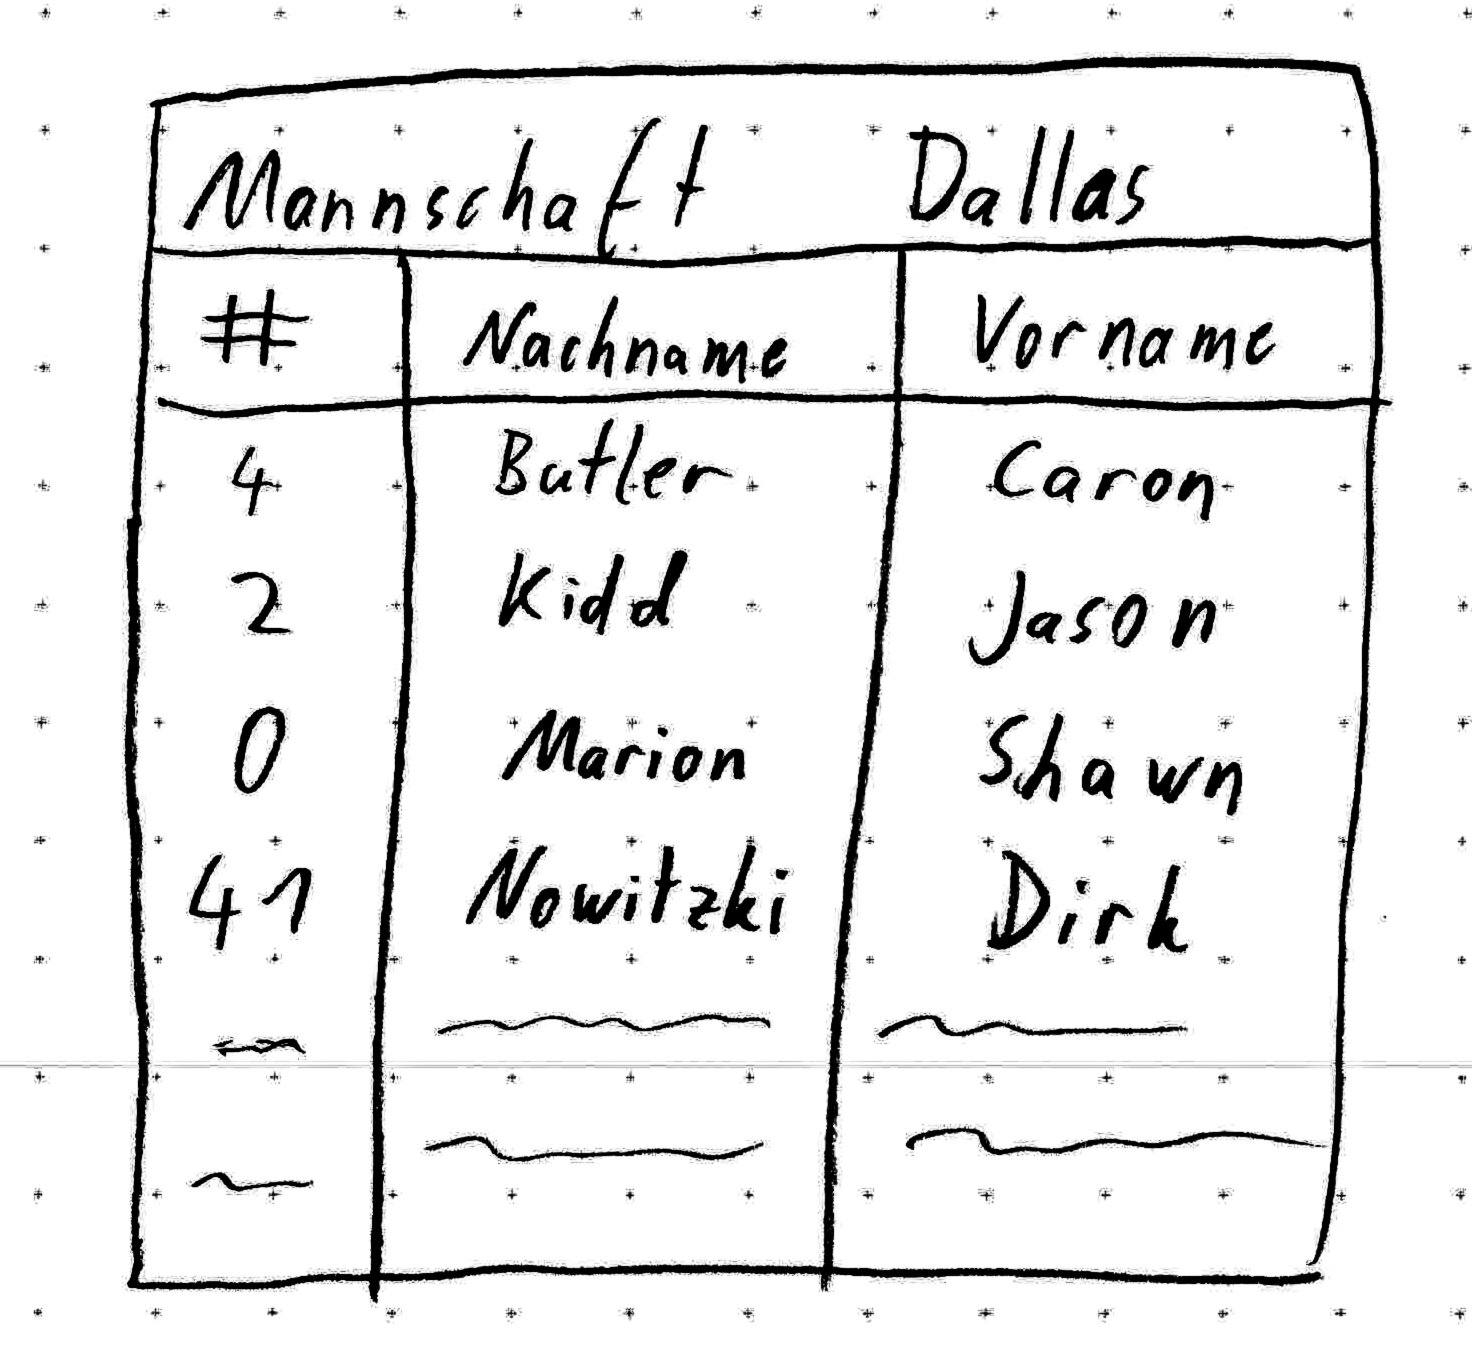 Mannschaft Dallas
# Nachname Vorname
4 Butler Caron
2 Kidd Jason
0 Marion Shawn
41 Nowitzki Dirk